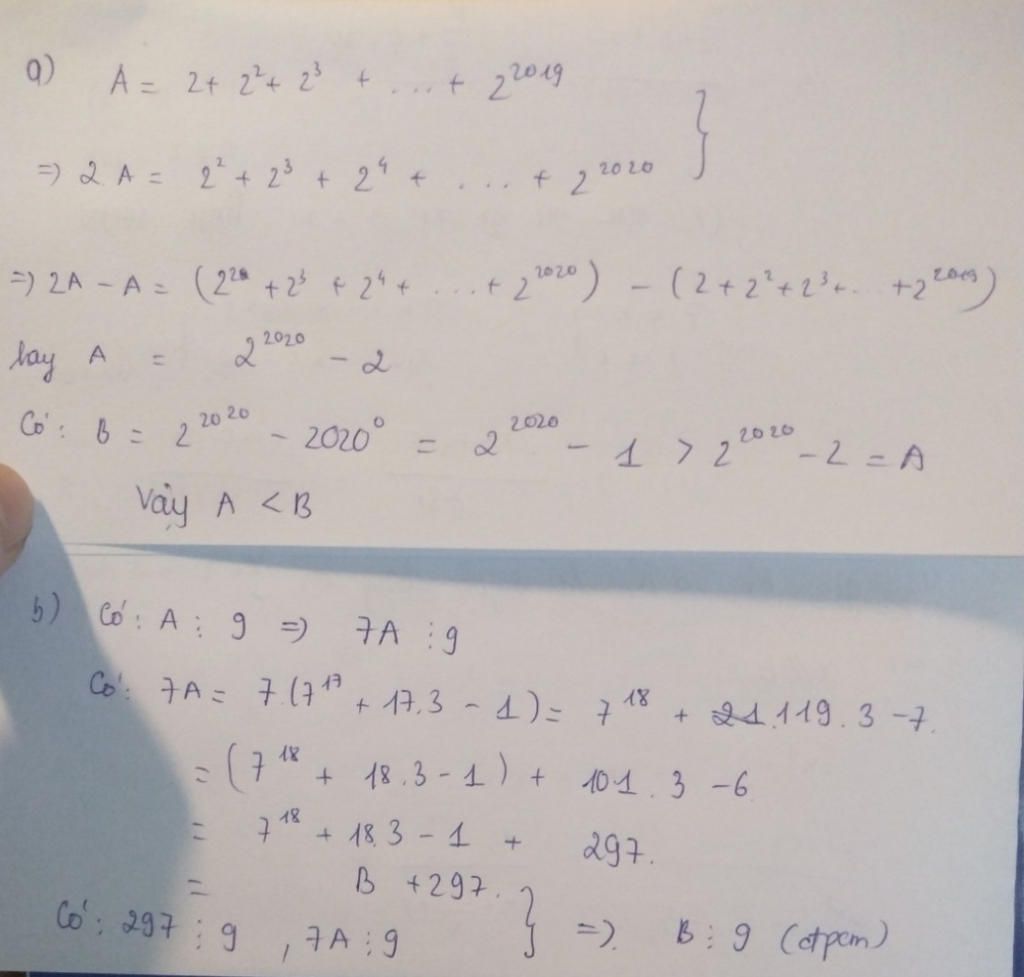 a) A = 2 + 2² + 2³ + .... + 2²⁰¹⁹
=> 2A = 2² + 2³ + 2⁴ + .... + 2²⁰²⁰ }
=> 2A - A = (2² + 2³ + 2⁴ + ... + 2²⁰²⁰) - (2 + 2² + 2³ + ... + 2²⁰¹⁹)
hay A = 2²⁰²⁰ - 2
Có: B = 2²⁰²⁰ - 2020⁰ = 2²⁰²⁰ - 1 > 2²⁰²⁰ - 2 = A
Vậy A < B
b) Có: A ⋮ 9 => 7A ⋮ 9
Có: 7A = 7.(7¹⁷ + 17.3 - 1) = 7¹⁸ + 119.3 - 7.
= (7¹⁸ + 18.3 - 1) + 101.3 - 6
= 7¹⁸ + 18.3 - 1 + 297.
= B + 297.
Có: 297 ⋮ 9, 7A ⋮ 9 } =>. B ⋮ 9 (đpcm)